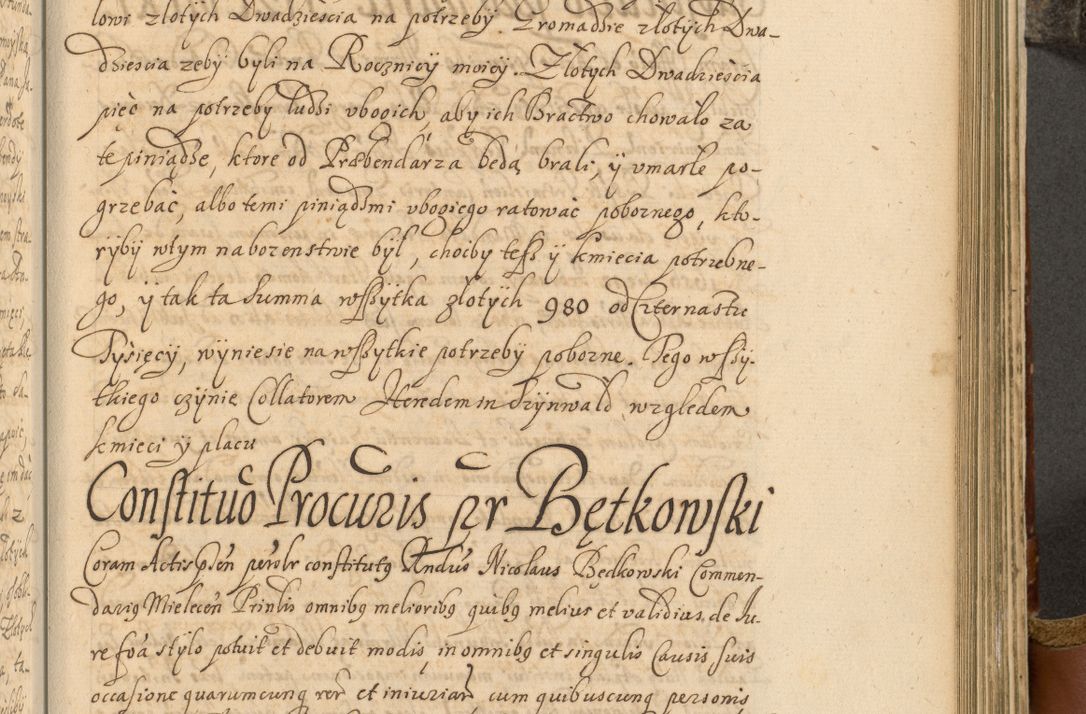 lowi złotych Dwadziescia na potrzeby. Zromadzie złotych Dwa-
dziescia zeby byli na Rocznicy moiey. Złotych Dwadziescia
pięć na potrzeby ludzi vbogich, aby ich Bractwo chowało za
te piniądze, ktore od Præbendarza bedą brali, y vmarłe po-
grzebać, albo temi piniądzmi vbogiego ratować pobornego, kto-
ryby wtym naborzenstwie był, chocby tesz y kmiecia potrzebne-
go, y tak ta Summa wssytka złotych 980 od Czternastu
Tysięcy, wyniesie na wssytkie potrzeby poborne. Tego wssy-
tkiego czynię Collatorem Heredem in Frynwald wzgledem
kmieci y placu
Constituo Procuris pr Bętkowski
Coram Actis psen persolr constitutq Andus Nicolaus Będkowski Commen-
dariq Mielecen Prinlis omnibq melioribq quibq melius et validius de Ju-
re foa stylo potuit et debuit modis, in omnibq et singulis Causis suis
occasione quarumcunq rer et iniuriar cum quibuscunq personis